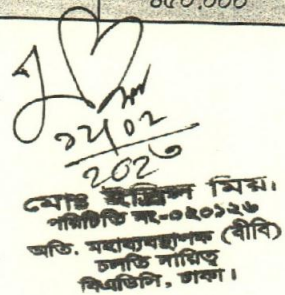 ৪৫০.০০০
১২/০২
২০২৩
মোঃ ইদ্রিস মিয়া
পরিচিতি নং-০২০১২৬
অতি. মহাব্যবস্থাপক (বীবি)
চলতি দায়িত্ব
বিএডিসি, ঢাকা।